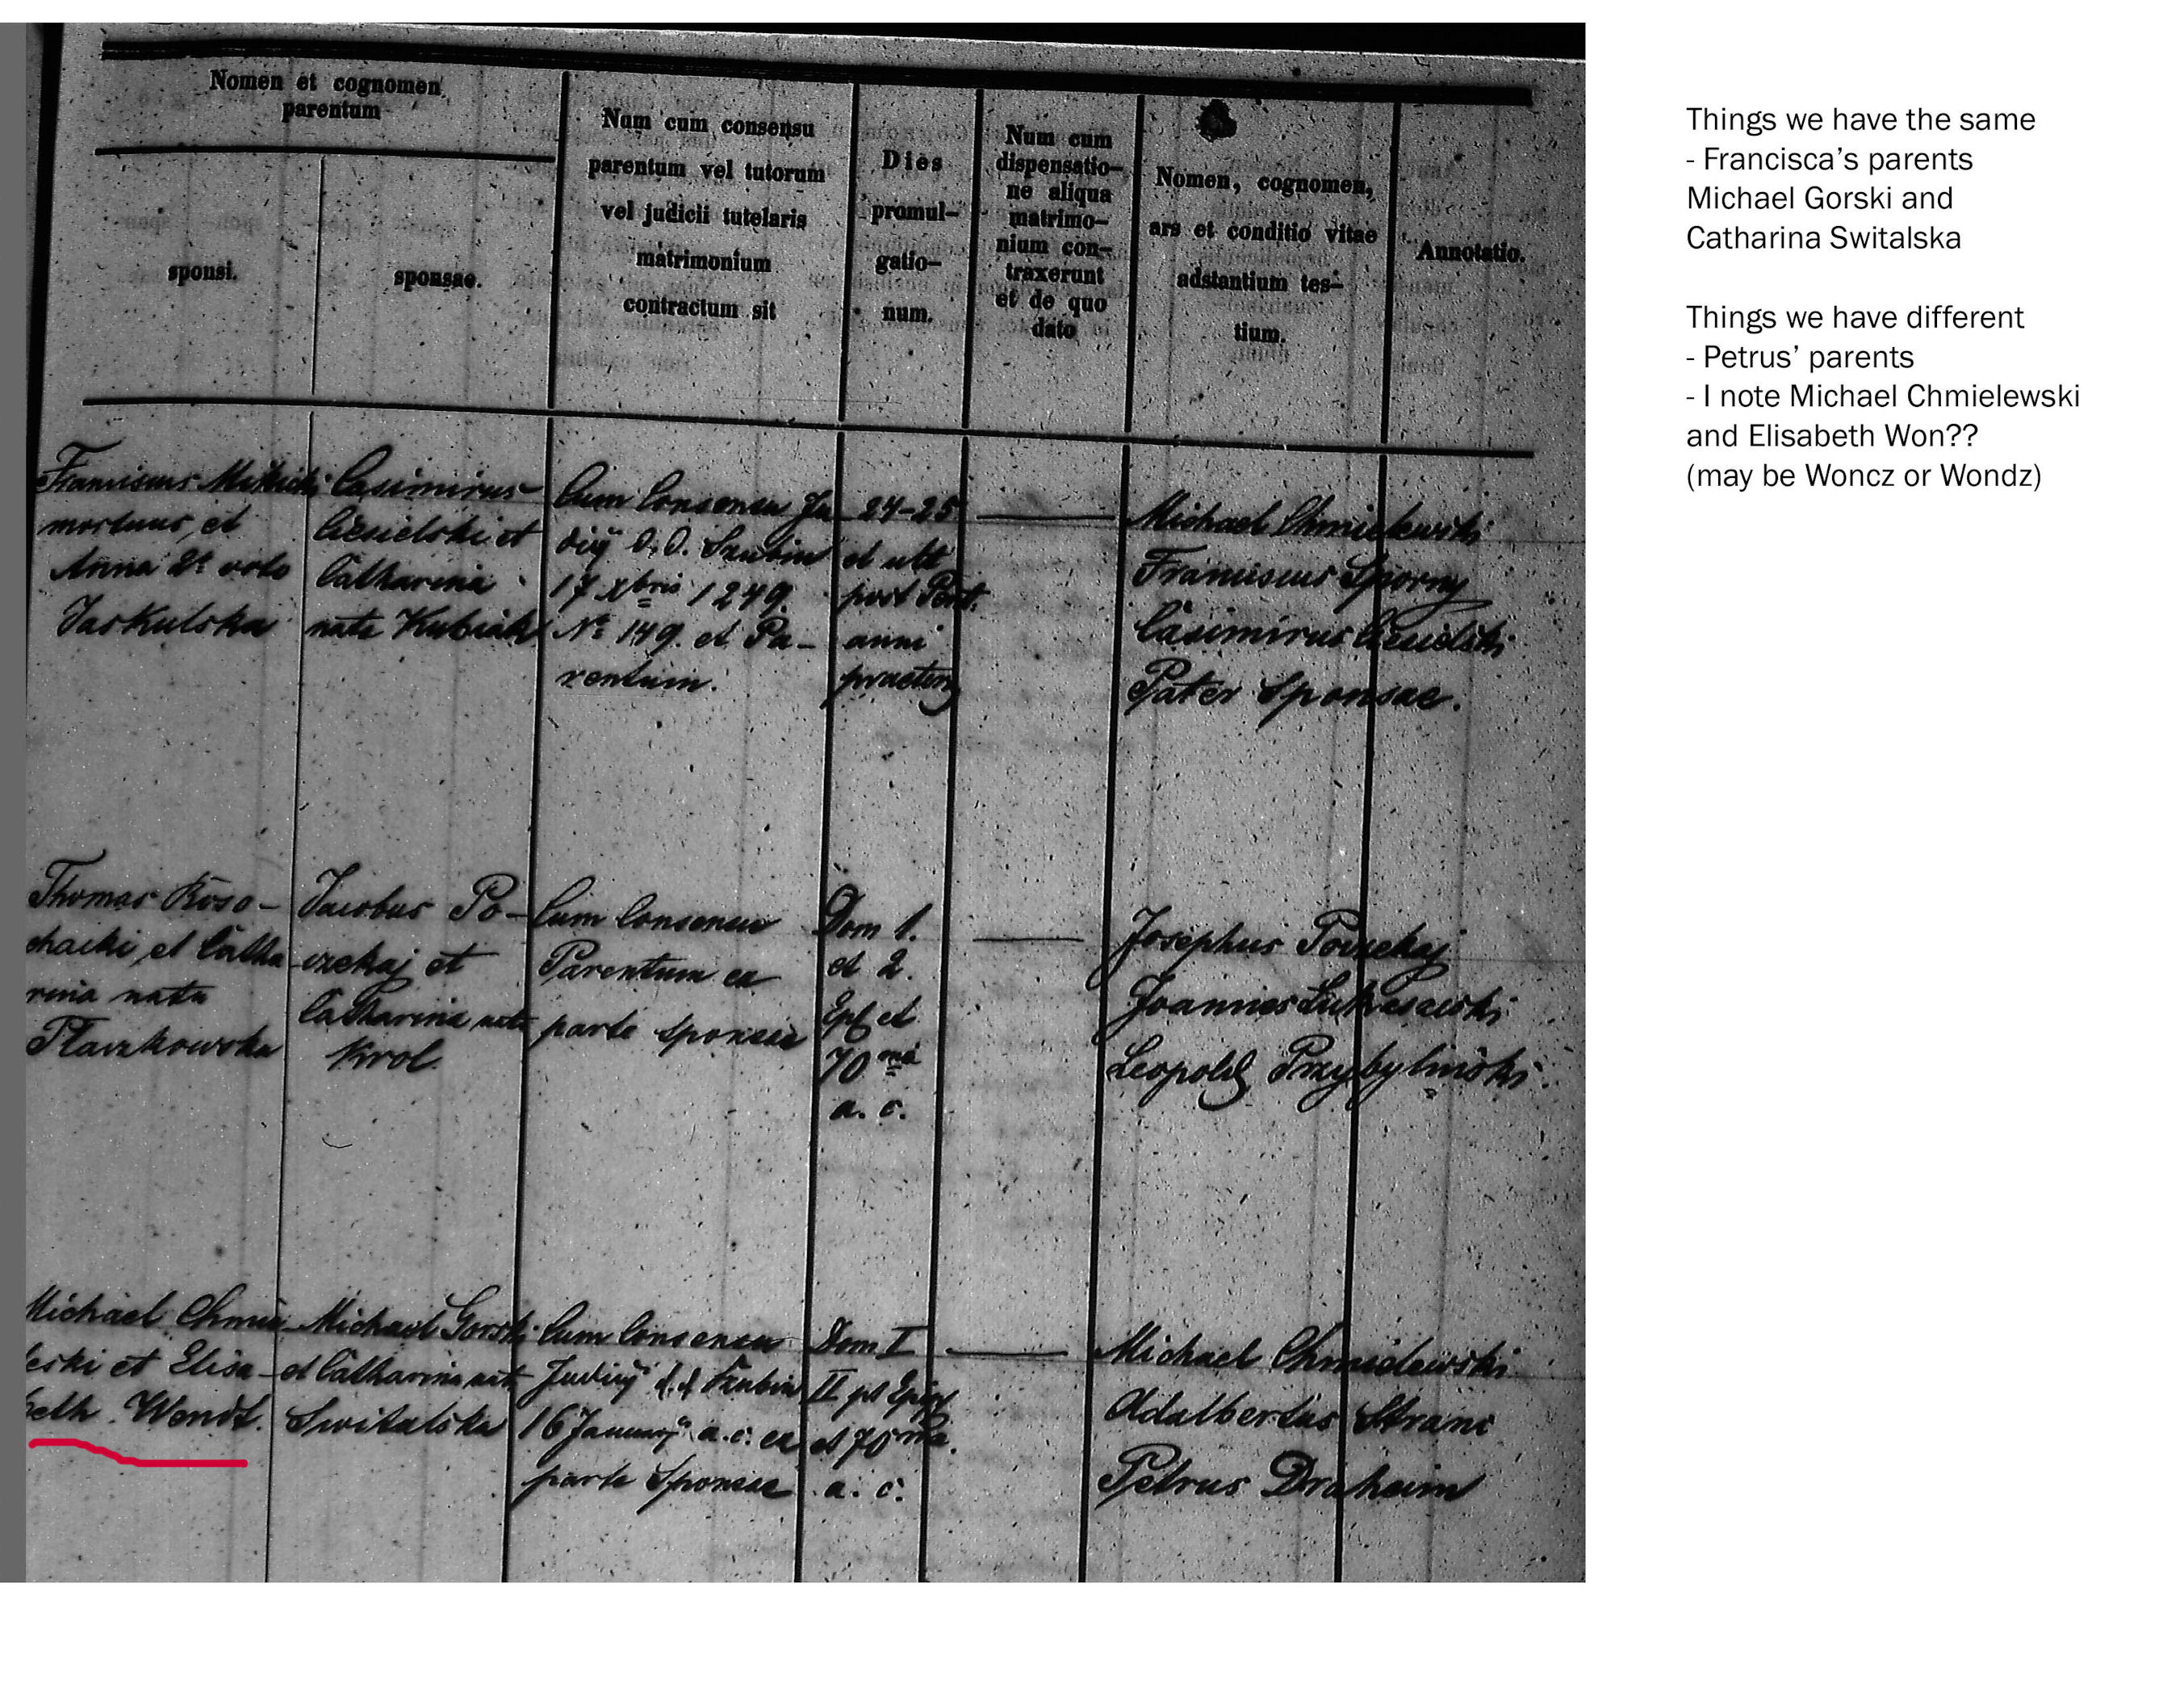 Nomen et cognomen
parentum
sponsi.
sponsae.
Num cum consensu
parentum vel tutorum
vel judicii tutelaris
matrimonium
contractum sit
Dies
promul-
gatio-
num.
Num cum
dispensatio-
ne aliqua
matrimo-
nium con-
traxerunt
et de quo
dato
Nomen, cognomen,
ars et conditio vitae
adstantium tes-
tium.
Annotatio.
Franciscus
mortuus, et
Anna 2º voto
Jaskulska
Casimirus
Ciesielski et
Catharina
nata Kubiak
Cum Consensu Ju
dicij D. D. Szubin
17 Xbris 1849.
Nº 149. et Pa-
rentum.
24-25
et ult
post Pent.
anni
Michael Chmielewski
Franciscus Sporny
Casimirus Ciesielski
Pater Sponsae.
Thomas Roso-
chacki, et Catha
rina nata
Ptaczkowska
Jacobus Po-
czekaj et
Catharina nata
Krol.
Cum Consensu
Parentum ex
parte Sponsae
Dom 1.
et 2.
Eph et
70ma
a. c.
Josephus Poczekaj
Joannes Lukaszewski
Leopold Przybyliński.
Michael Chmie-
leski et Elisa-
beth Wendt.
Michael Gorski
et Catharina nata
Switalska
Cum Consensu
Judicij d. d Szubin
16 Januarij a. c. ex
parte Sponsae
Dom I
II pt Epiph
et 70ma.
a. c.
Michael Chmielewski
Adalbertus Strani
Petrus Draheim
Things we have the same
- Francisca’s parents
Michael Gorski and
Catharina Switalska
Things we have different
- Petrus’ parents
- I note Michael Chmielewski
and Elisabeth Won??
(may be Woncz or Wondz)